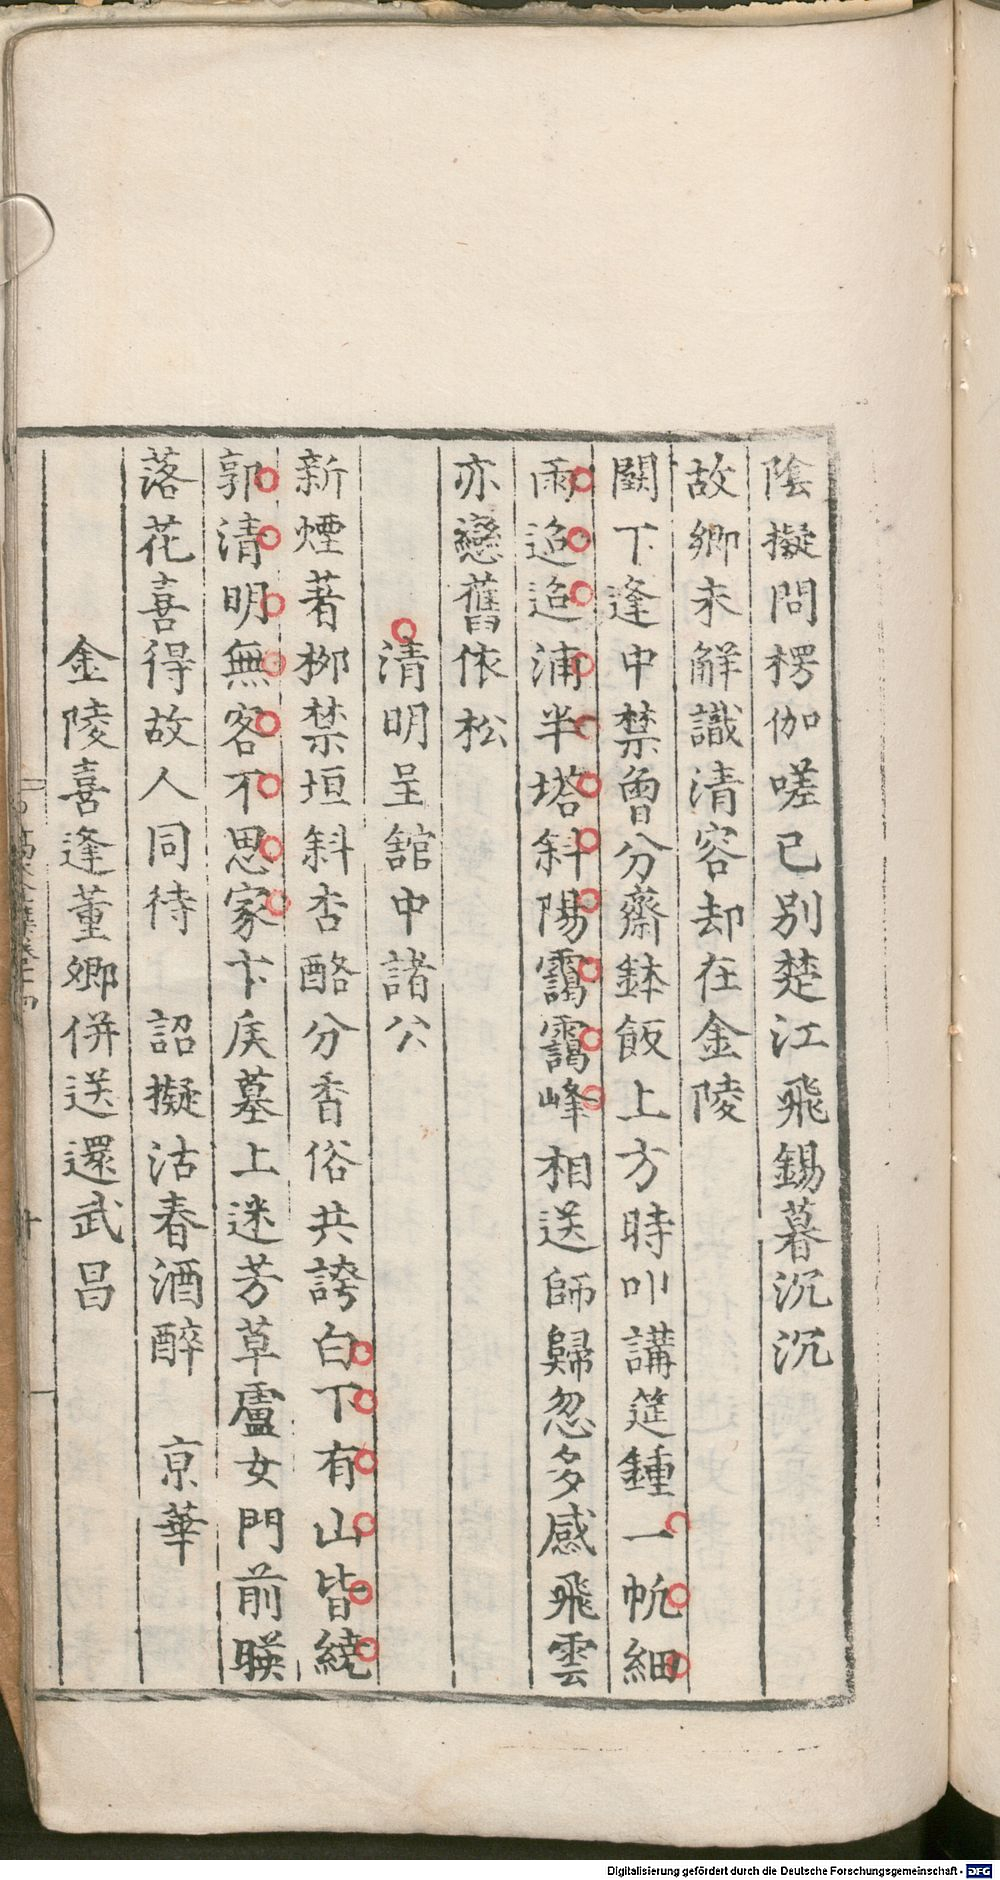 陰擬問楞伽嗟已別楚江飛錫暮沉沉
故鄉未解識清容却在金陵
闕下逢中禁曾分齋鉢飯上方時叩講筵鍾一帆細
雨迢迢浦半塔斜陽靄靄峰相送師歸忽多感飛雲
亦戀舊依松
清明呈舘中諸公
新煙著桞禁垣斜杏酪分香俗共誇白下有山皆繞
郭清明無客不思家卞矦墓上迷芳草盧女門前暎
落花喜得故人同待 詔擬沽春酒醉 亰華
金陵喜逢董鄉併送還武昌
Digitalisierung gefördert durch die Deutsche Forschungsgemeinschaft - DFG